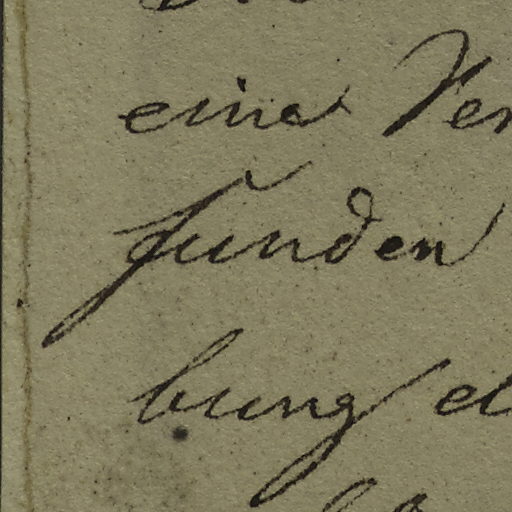 eine Ver
funden
bung d